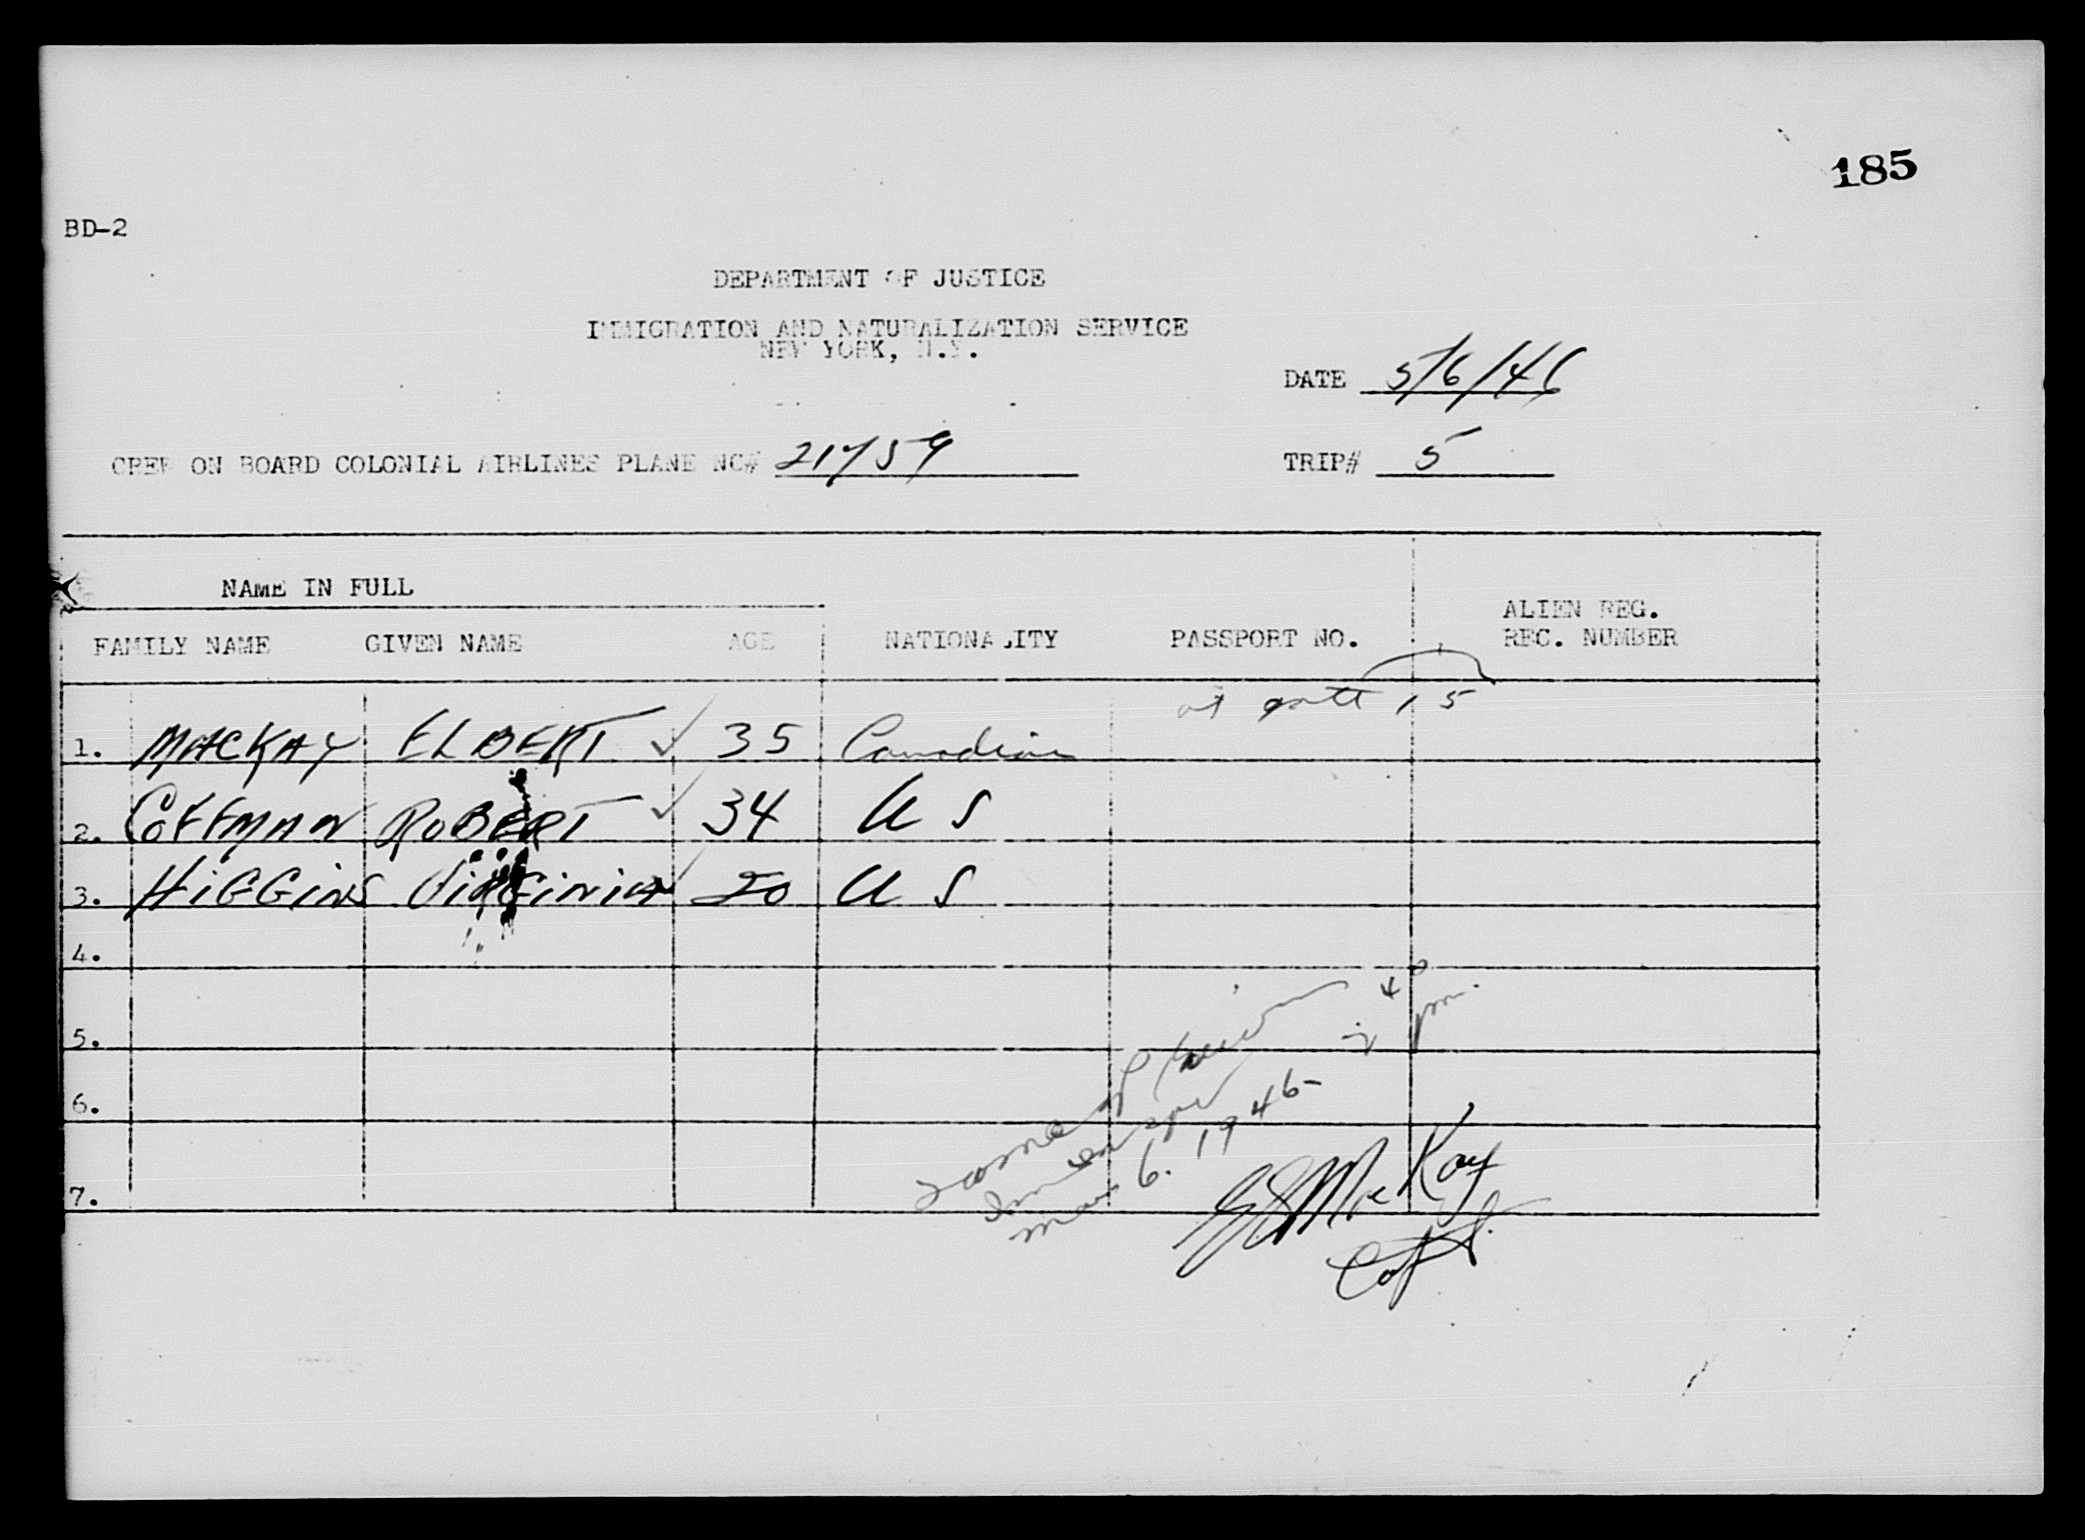 185
BD-2
DEPARTMENT OF JUSTICE
IMMIGRATION AND NATURALIZATION SERVICE
NEW YORK, N.Y.
DATE 5/6/46
CREW ON BOARD COLONIAL AIRLINES PLANE NC# 21759
TRIP# 5
NAME IN FULL
FAMILY NAME GIVEN NAME AGE NATIONALITY PASSPORT NO. ALIEN REG. REC. NUMBER
at gate 15
1. MACKAY ELBERT ✓ 35 Canadian
2. COFFMAN ROBERT ✓ 34 U S
3. HIGGINS VIRGINIA ✓ 20 U S
4.
5.
6.
7.
pm.
6. 1946
Capt.